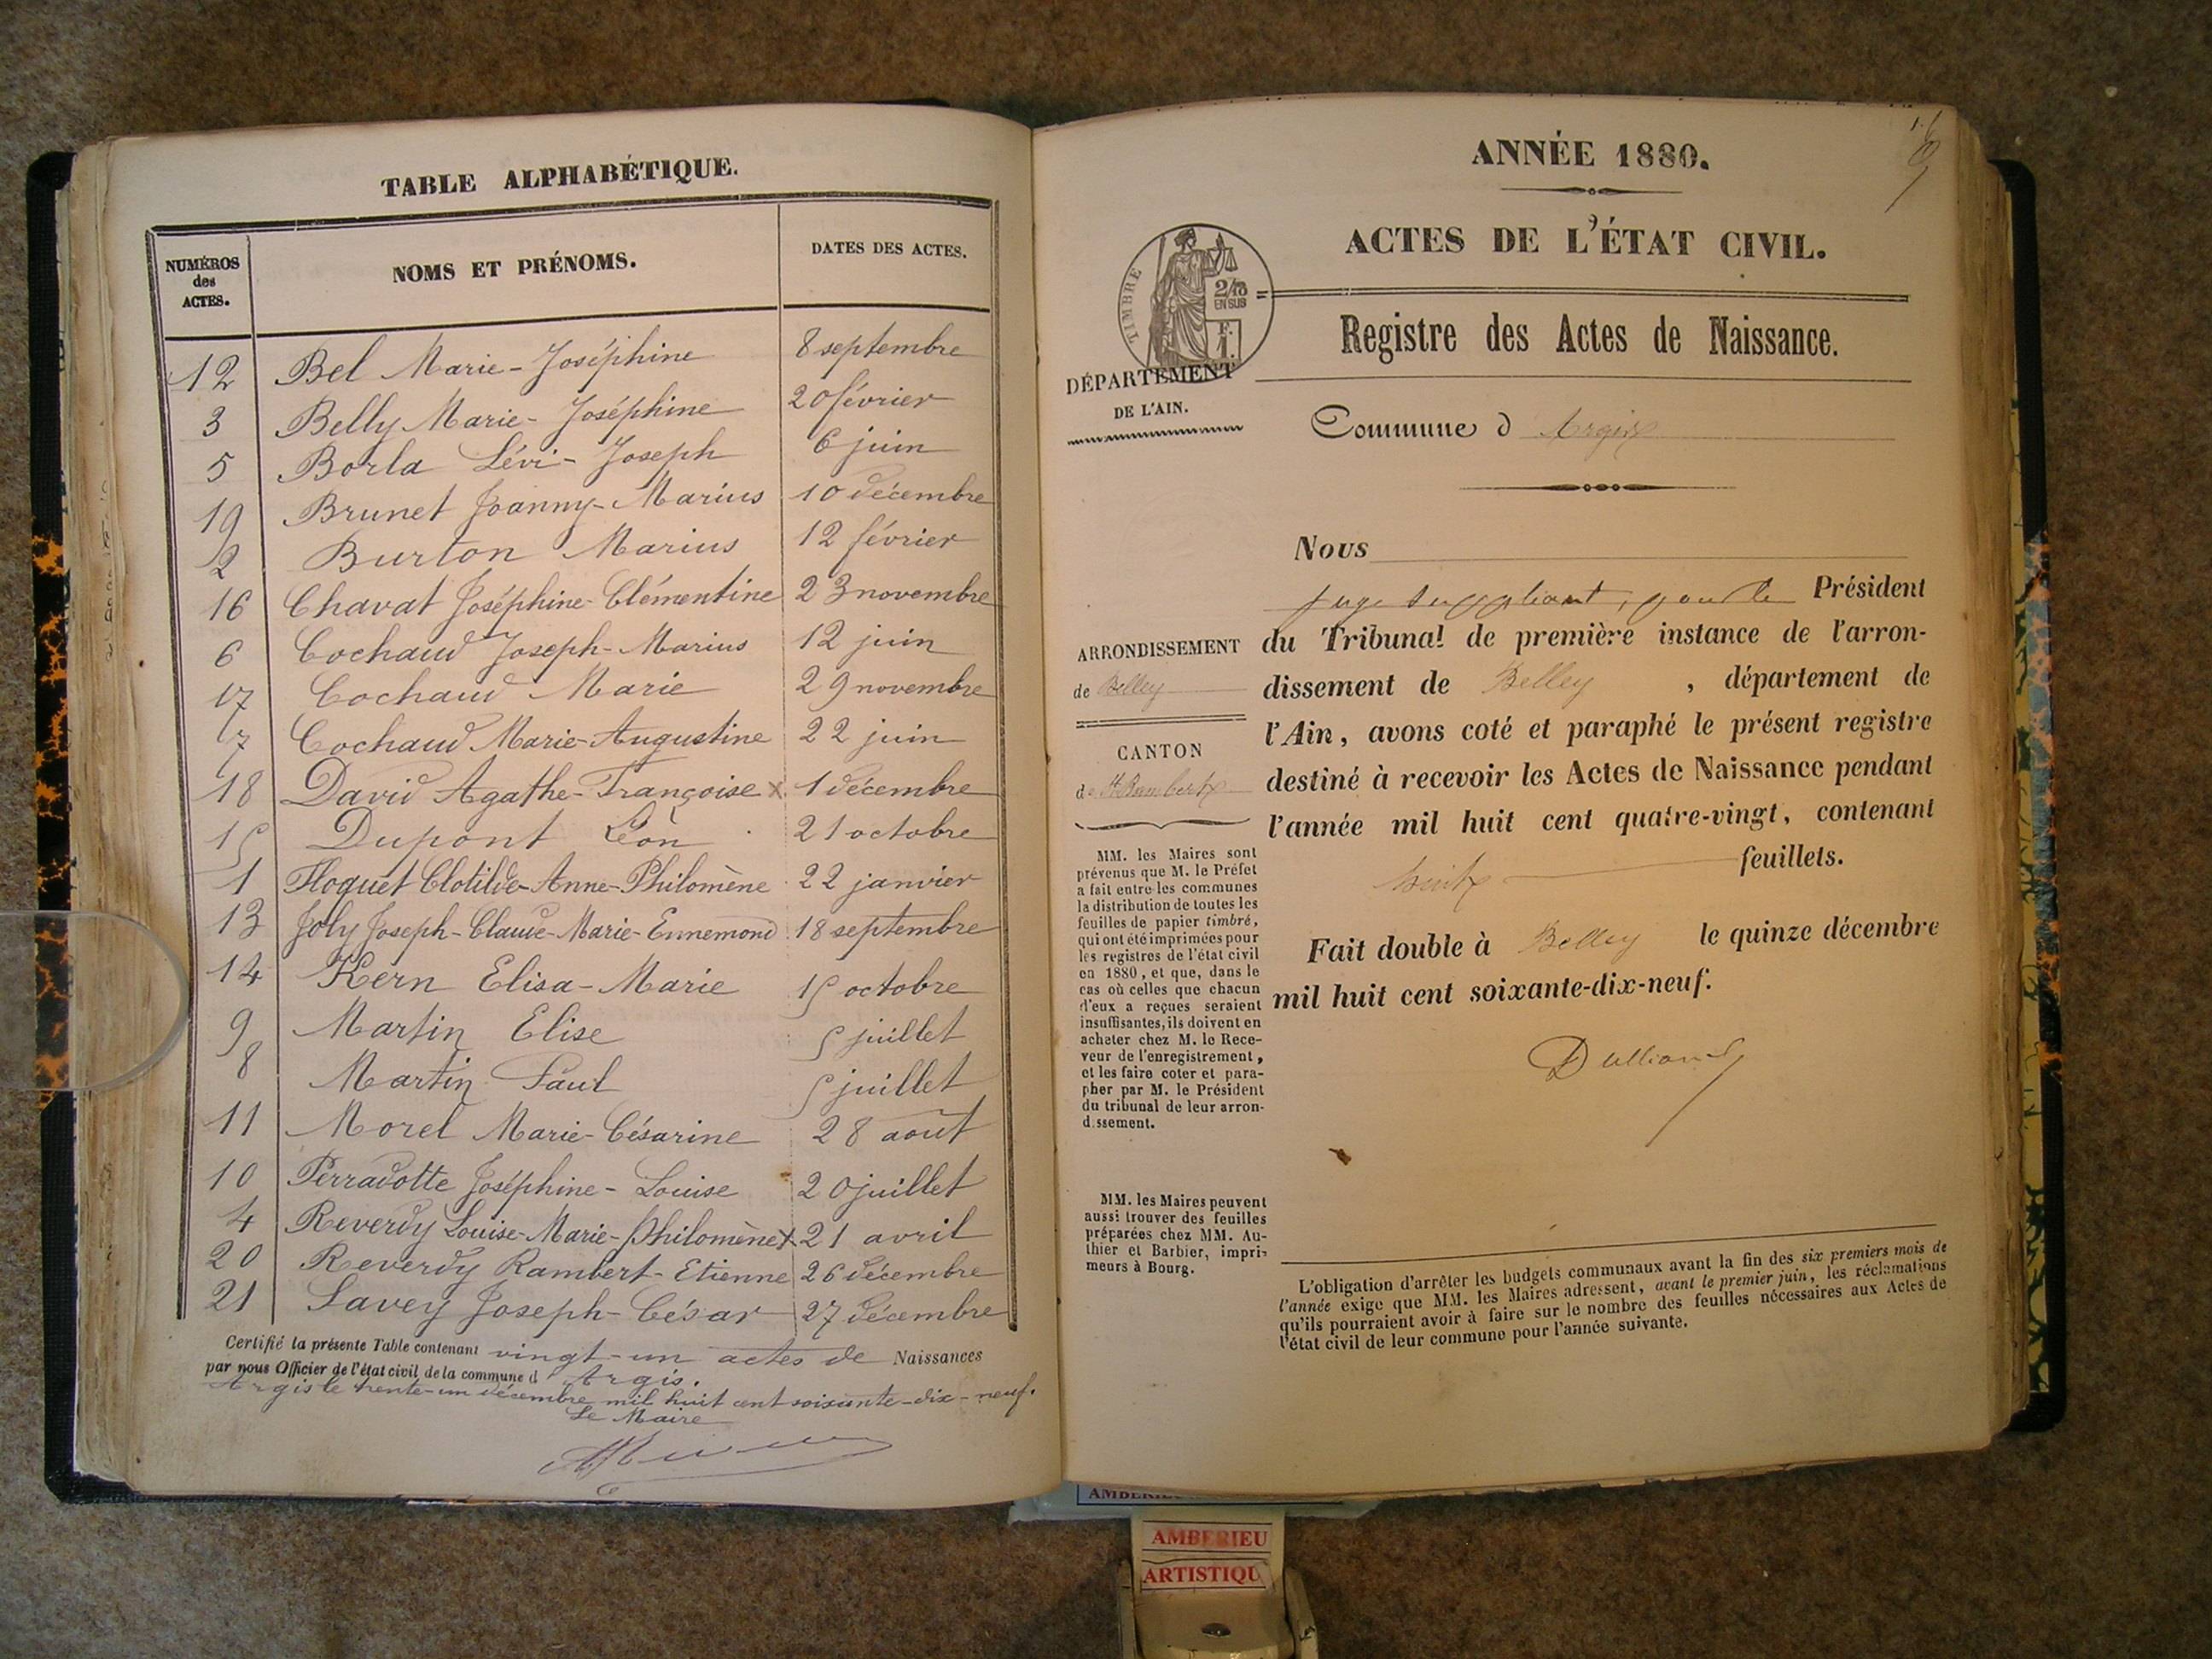 TABLE ALPHABÉTIQUE.
NUMÉROS des ACTES. NOMS ET PRÉNOMS. DATES DES ACTES.
12 Bel Marie-Joséphine 8 septembre
3 Belly Marie-Joséphine 20 février
5 Borla Lévi-Joseph 6 juin
19 Brunet Joanny-Marius 10 décembre
2 Burton Marius 12 février
16 Chavat Joséphine-Clémentine 23 novembre
6 Cochaud Joseph-Marius 12 juin
17 Cochaud Marie 29 novembre
7 Cochaud Marie-Augustine 22 juin
18 David Agathe-Françoise x 1 décembre
15 Dupont Léon 21 octobre
1 Floquet Clotilde-Anne-Philomène 22 janvier
13 Joly Joseph-Claude-Marie-Ennemond 18 septembre
14 Kern Elisa-Marie 15 octobre
9 Martin Elise 5 juillet
8 Martin Paul 5 juillet
11 Morel Marie-Césarine 28 août
10 Perradotte Joséphine-Louise 20 juillet
4 Reverdy Louise-Marie-Philomène x 21 avril
20 Reverdy Rambert-Etienne 26 décembre
21 Savey Joseph-César 27 décembre
Certifié la présente Table contenant vingt-un actes de Naissances
par nous Officier de l'état civil de la commune d Argis.
Argis le trente-un décembre mil huit cent soixante-dix-neuf.
Le Maire
ANNÉE 1880.
ACTES DE L'ÉTAT CIVIL.
TIMBRE
2/10
EN SUS
Registre des Actes de Naissance.
DÉPARTEMENT
DE L'AIN.
Commune d Argis
Nous
juge suppléant, pour le Président
du Tribunal de première instance de l'arron-
dissement de Belley, département de
l'Ain, avons coté et paraphé le présent registre
destiné à recevoir les Actes de Naissance pendant
l'année mil huit cent quatre-vingt, contenant
huit feuillets.
Fait double à Belley le quinze décembre
mil huit cent soixante-dix-neuf.
ARRONDISSEMENT
de Belley
CANTON
de St Rambert
MM. les Maires sont
prévenus que M. le Préfet
a fait entre les communes
la distribution de toutes les
feuilles de papier timbré,
qui ont été imprimées pour
les registres de l'état civil
en 1880, et que, dans le
cas où celles que chacun
d'eux a reçues seraient
insuffisantes, ils doivent en
acheter chez M. le Rece-
veur de l'enregistrement,
et les faire coter et para-
pher par M. le Président
du tribunal de leur arron-
dissement.
MM. les Maires peuvent
aussi trouver des feuilles
préparées chez MM. Au-
thier et Barbier, impri-
meurs à Bourg.
L'obligation d'arrêter les budgets communaux avant la fin des six premiers mois de
l'année exige que MM. les Maires adressent, avant le premier juin, les réclamations
qu'ils pourraient avoir à faire sur le nombre des feuilles nécessaires aux Actes de
l'état civil de leur commune pour l'année suivante.
AMBERIEU
ARTISTIQU